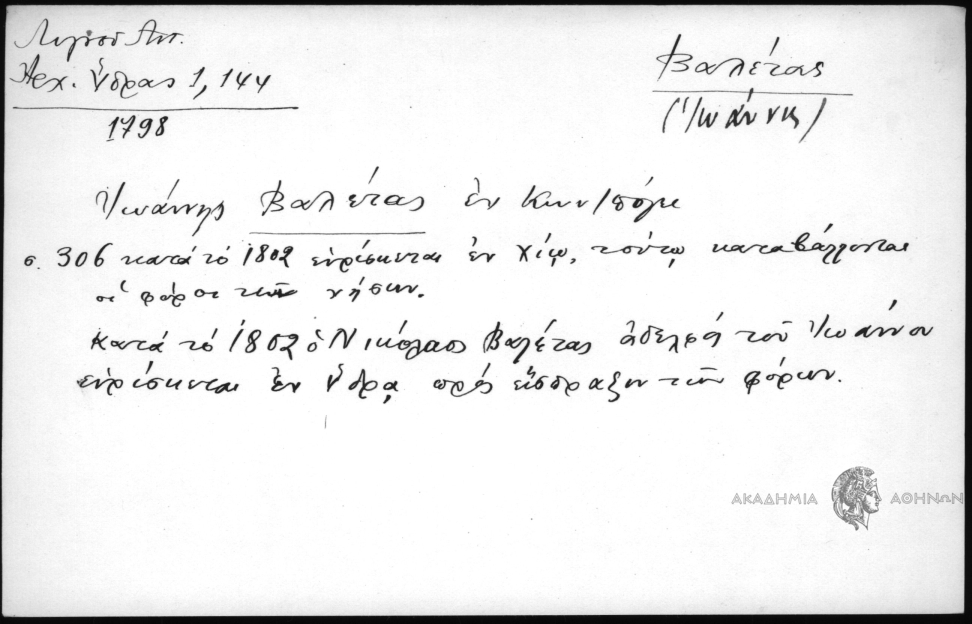 Λιγνοῦ Ἀντ.
Ἀρχ. Ὕδρας 1, 144
1798
Βαλέτας
(Ἰωάννης)
Ἰωάννης Βαλέτας ἐν Κων/πόλει
σ. 306 κατά τό 1802 εὑρίσκεται ἐν Χίῳ, τούτῳ καταβάλλονται
οἱ φόροι τῶν νήσων.
Κατά τό 1802 ὁ Νικόλαος Βαλέτας ἀδελφός τοῦ Ἰωάννου
εὑρίσκεται ἐν Ὕδρᾳ πρός εἴσπραξιν τῶν φόρων.
ΑΚΑΔΗΜΙΑ ΑΘΗΝΩΝ